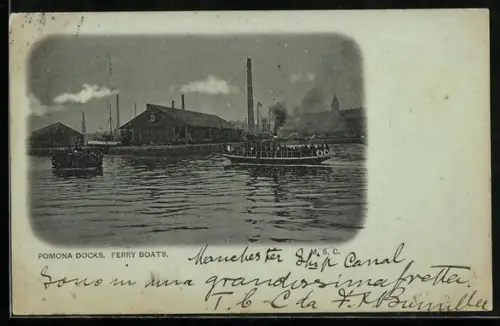 POMONA DOCKS. FERRY BOATS. M. S. C.
Manchester Ship Canal
Sono in una grandissima fretta.
T. C. C da